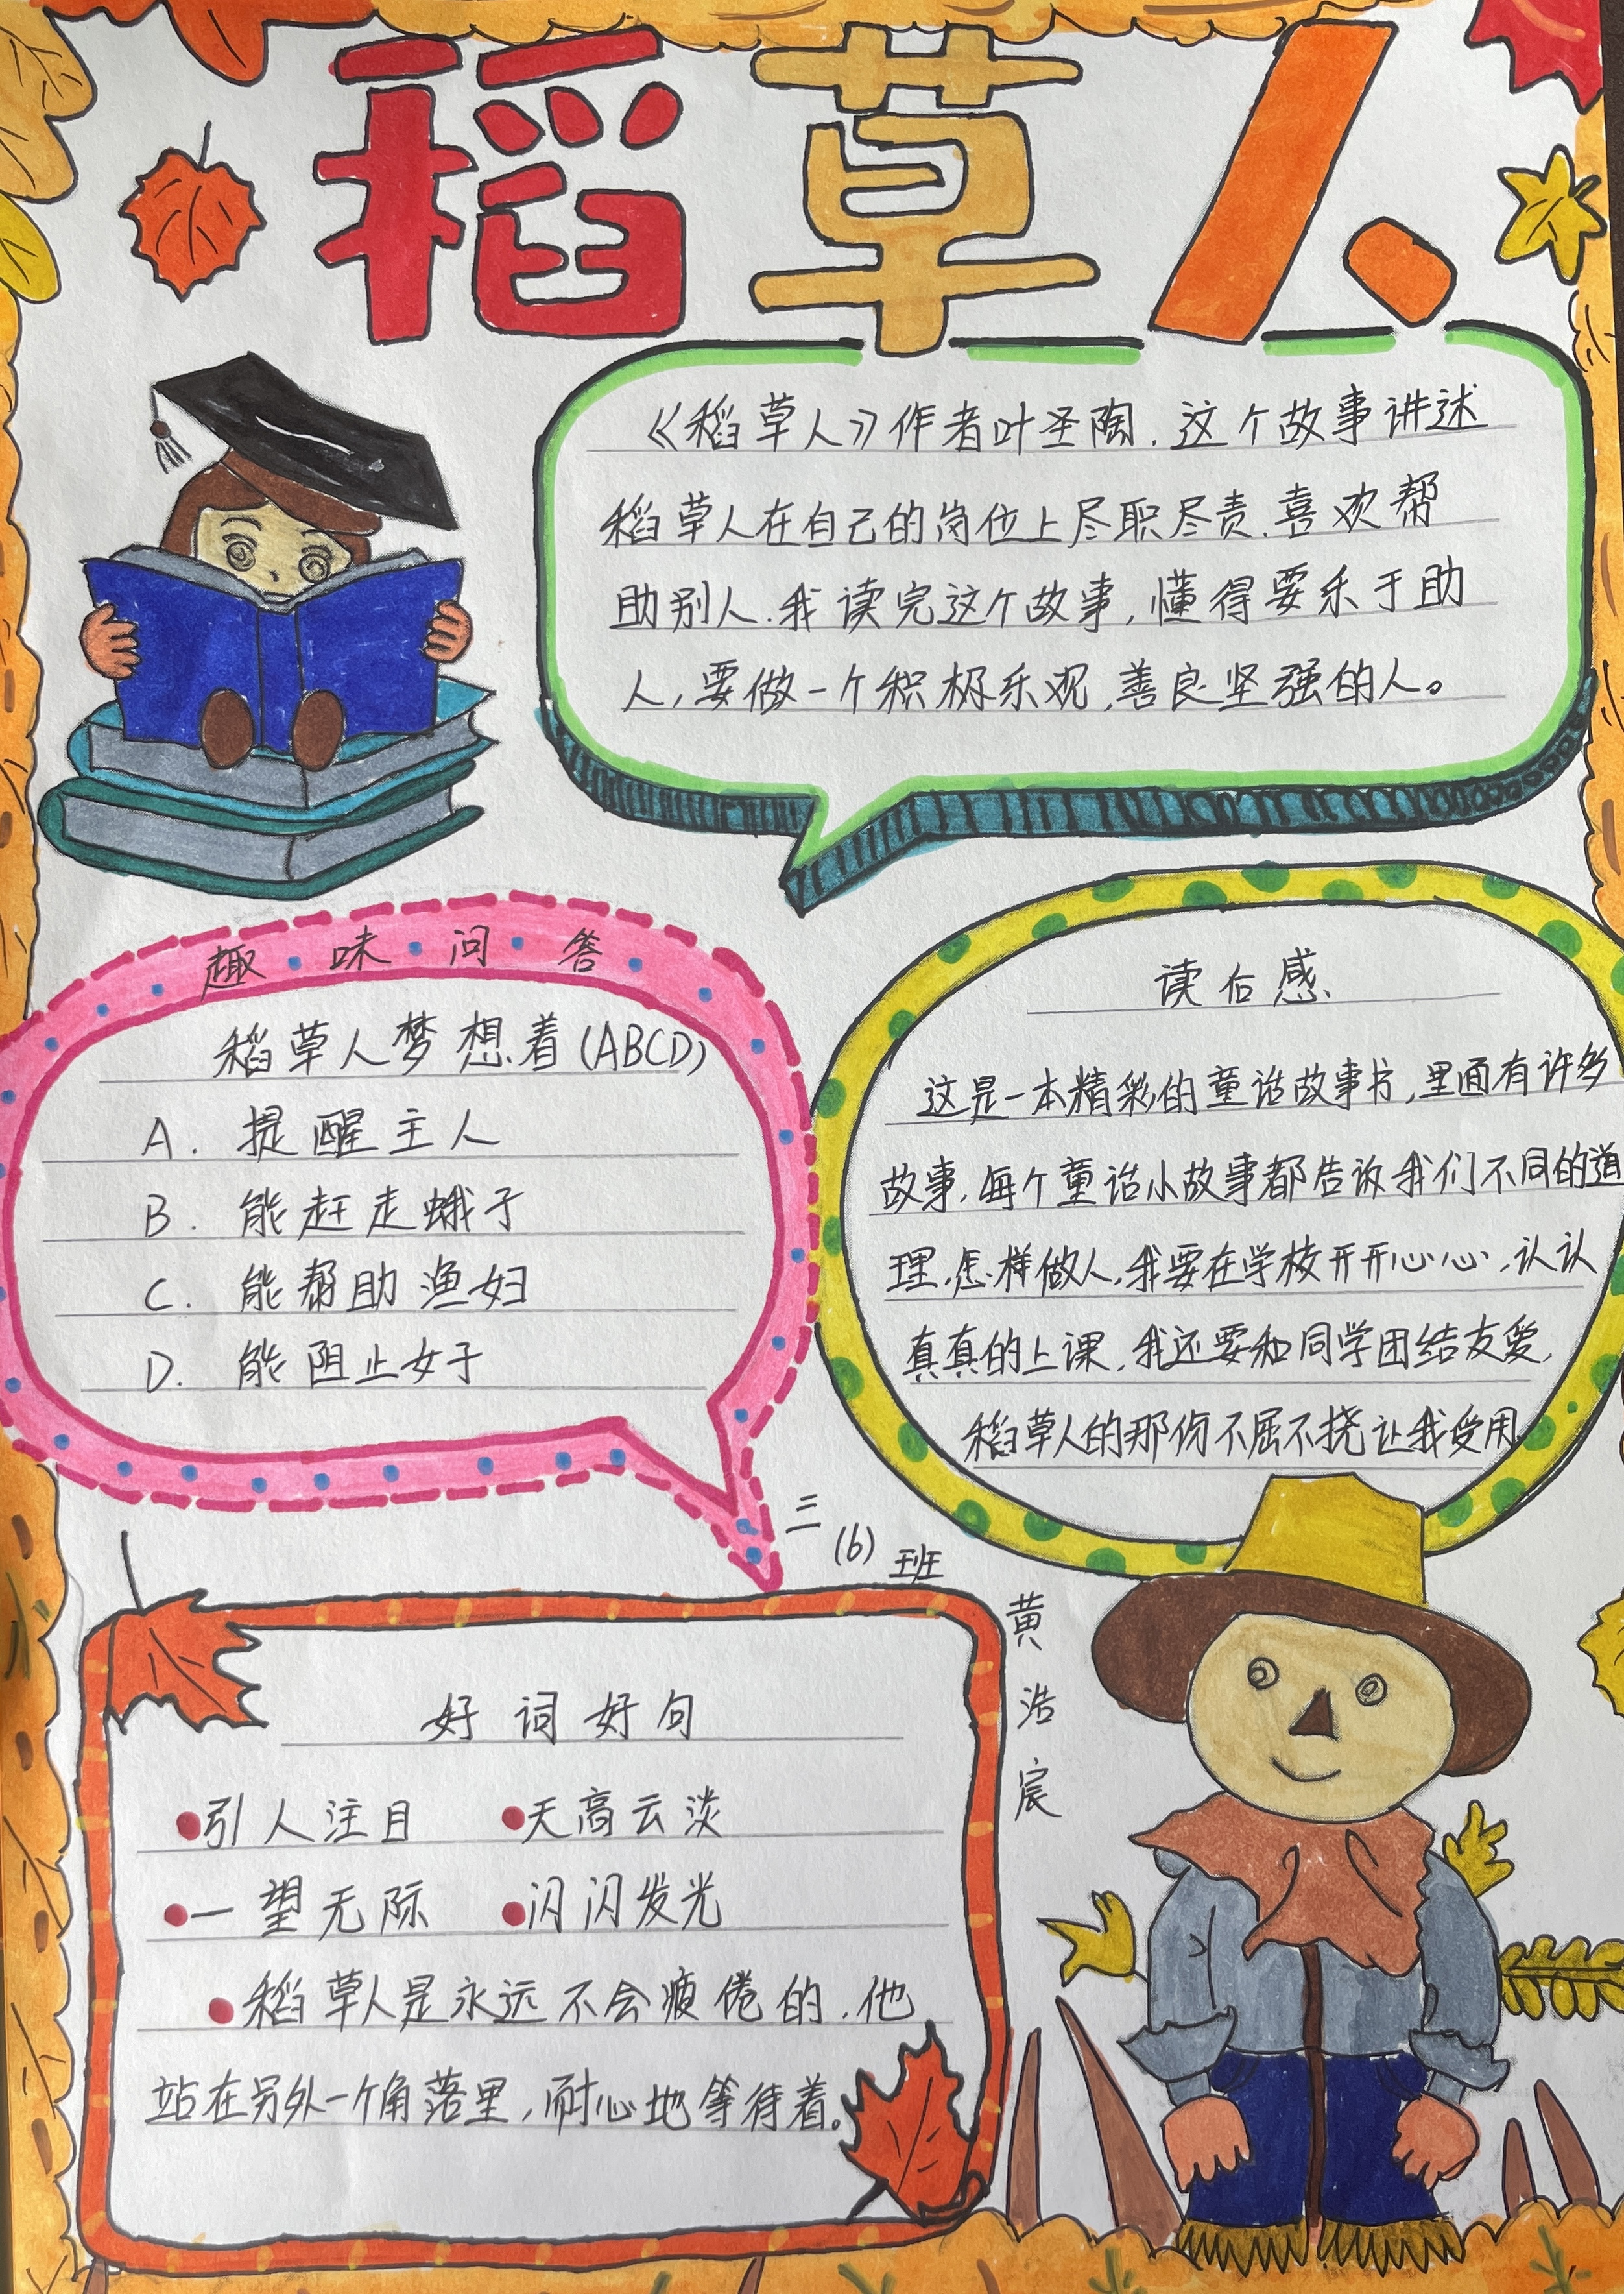 稻草人
《稻草人》作者叶圣陶.这个故事讲述
稻草人在自己的岗位上尽职尽责.喜欢帮
助别人.我读完这个故事,懂得要乐于助
人,要做一个积极乐观,善良坚强的人。
趣味问答
稻草人梦想着(ABCD)
A. 提醒主人
B. 能赶走蛾子
C. 能帮助渔妇
D. 能阻止女子
读后感
这是一本精彩的童话故事书,里面有许多
故事,每个童话小故事都告诉我们不同的道
理,怎样做人,我要在学校开开心心,认认
真真的上课,我还要和同学团结友爱,
稻草人的那份不屈不挠让我受用.
三(6)班
黄浩宸
好词好句
引人注目 天高云淡
一望无际 闪闪发光
稻草人是永远不会疲倦的,他
站在另外一个角落里,耐心地等待着。